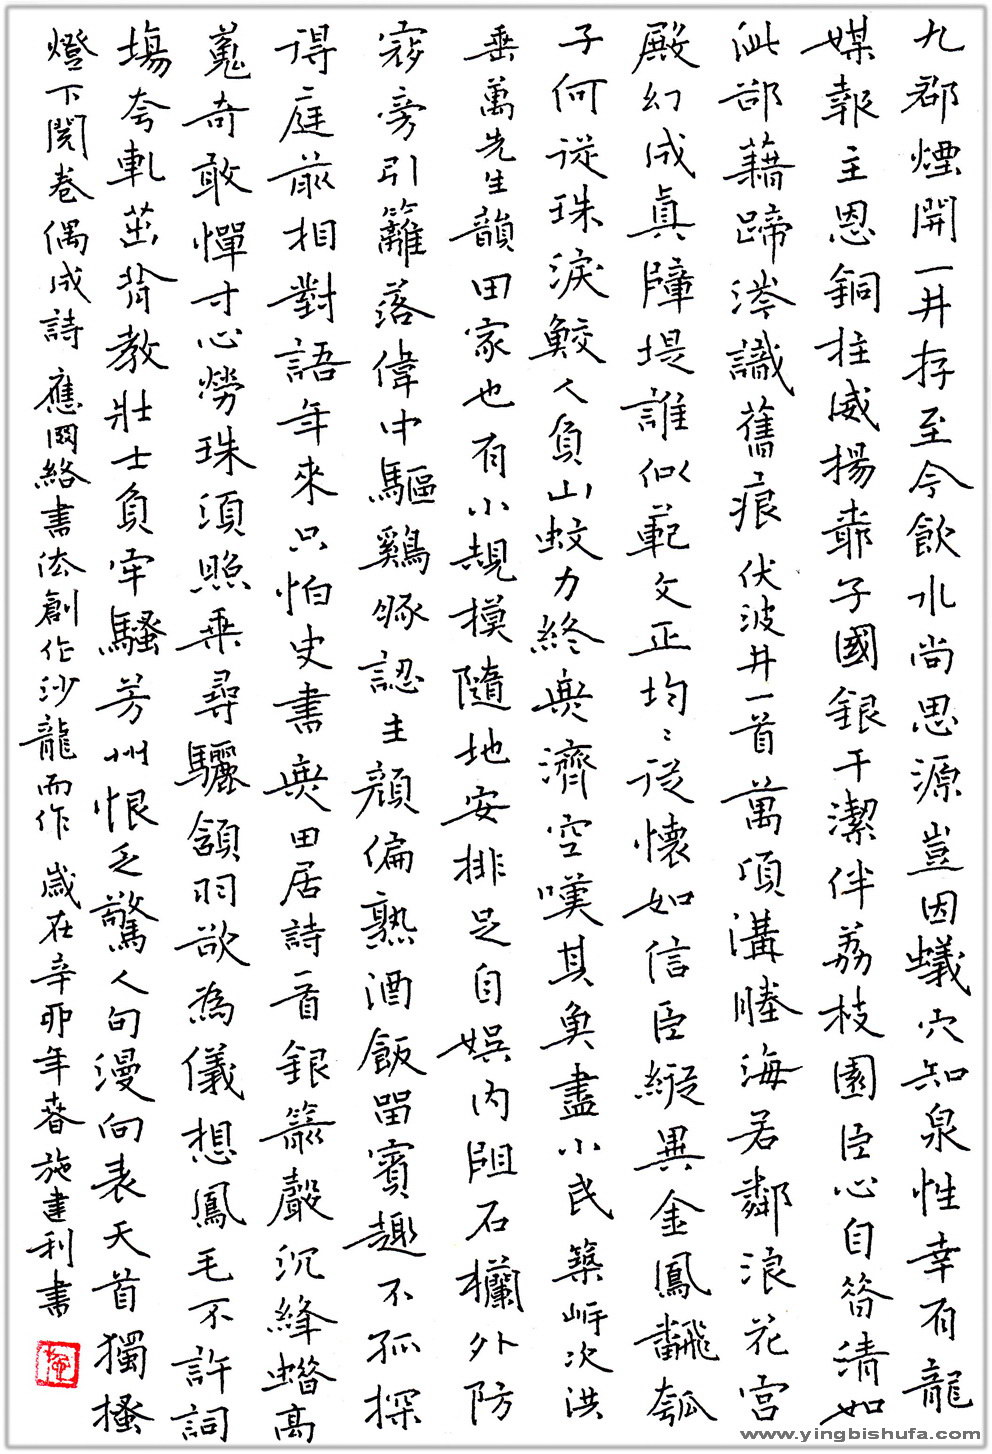 九郡煙開一井存至今飲水尚思源豈因蟻穴知泉性幸有龍
媒報主恩銅柱威揚靠子國銀干潔伴荔枝園臣心自答清如
此部藉蹄涔識舊痕伏波井一首萬頃溝塍海若鄰浪花宮
殿幻成真障堤誰似範文正均均從懷如信臣縱異金鳳翻瓠
子何從珠淚鮫人負山蚊力終無濟空嘆其魚盡小民築岍次洪
垂萬先生韻田家也有小規模隨地安排足自娛內阻石欄外防
窮旁引籬落偉中驅鷄豚認主顏偏熟酒飯留賓趣不孤探
得庭前相對語年來只怕史書無田居詩一首銀箭聲沉絳蠟高
蒐奇敢憚寸心勞珠須照乘尋驪頷羽欲為儀想鳳毛不許詞
場夸軋茁肯教壯士負牢騷芳州恨乏驚人句漫向表天首獨搔
燈下閱卷偶成詩應网絡書法創作沙龍而作歲在辛卯年春施建利書
www.yingbishufa.com